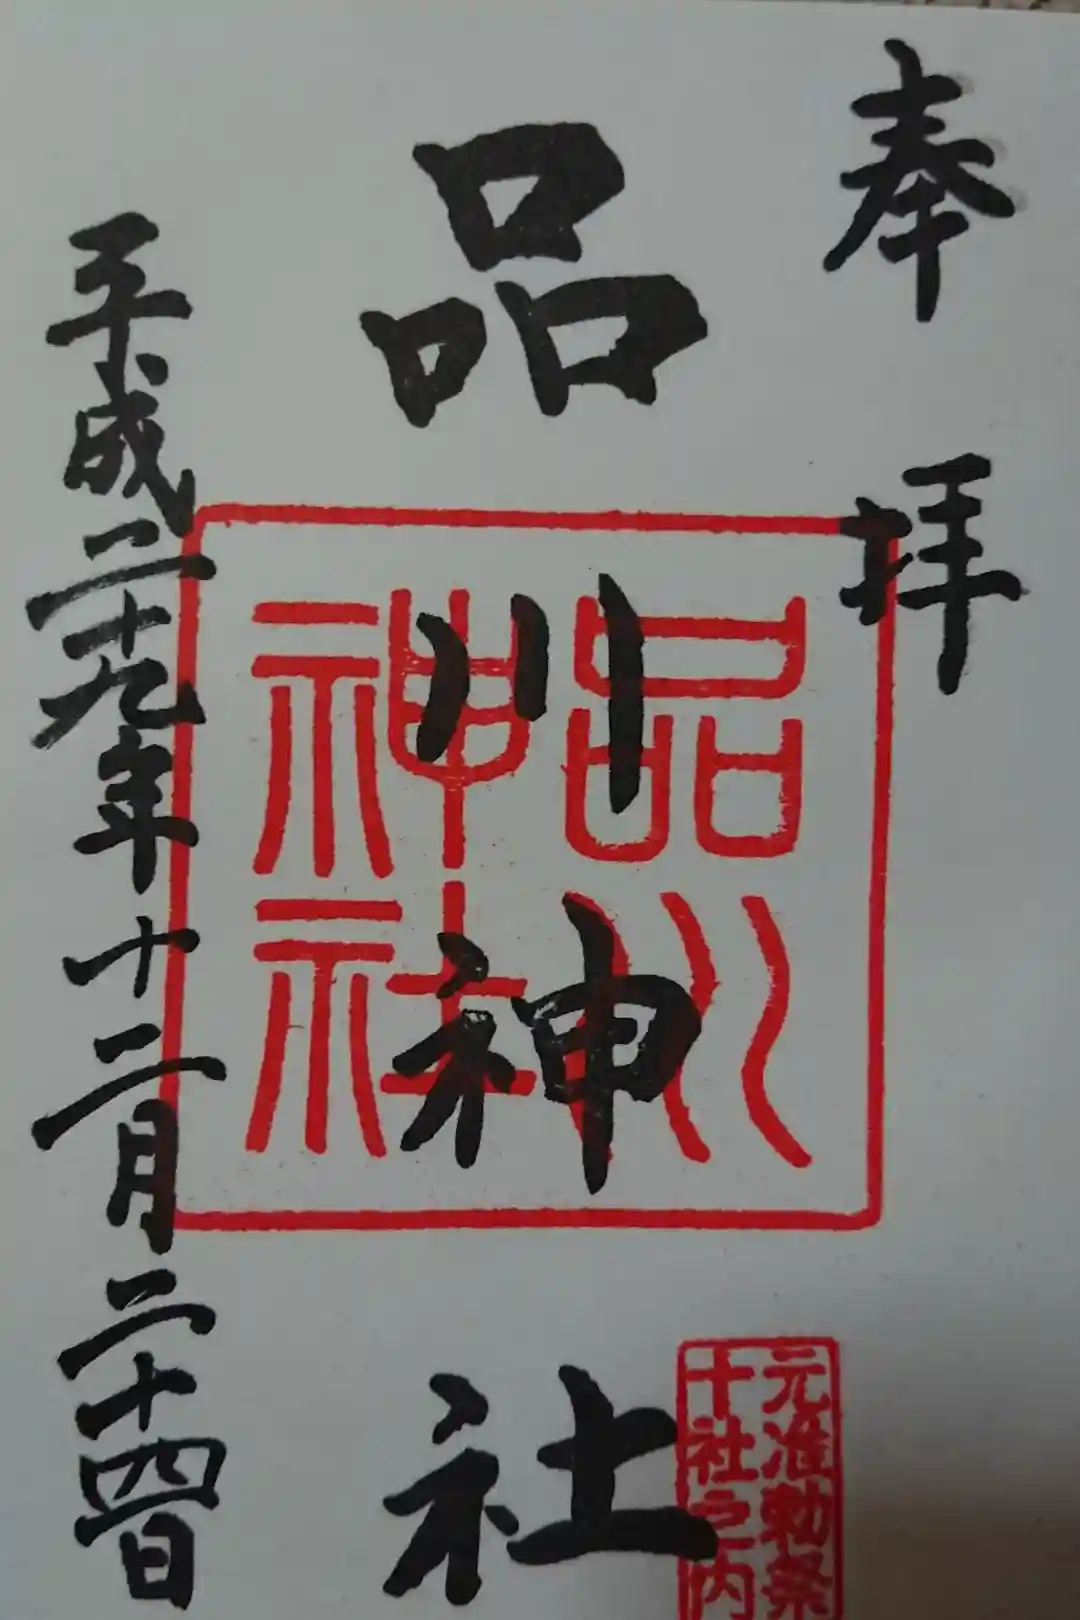 奉拝
品川神社
品川
神社
元准勅祭
十社之内
平成二十九年十二月二十四日